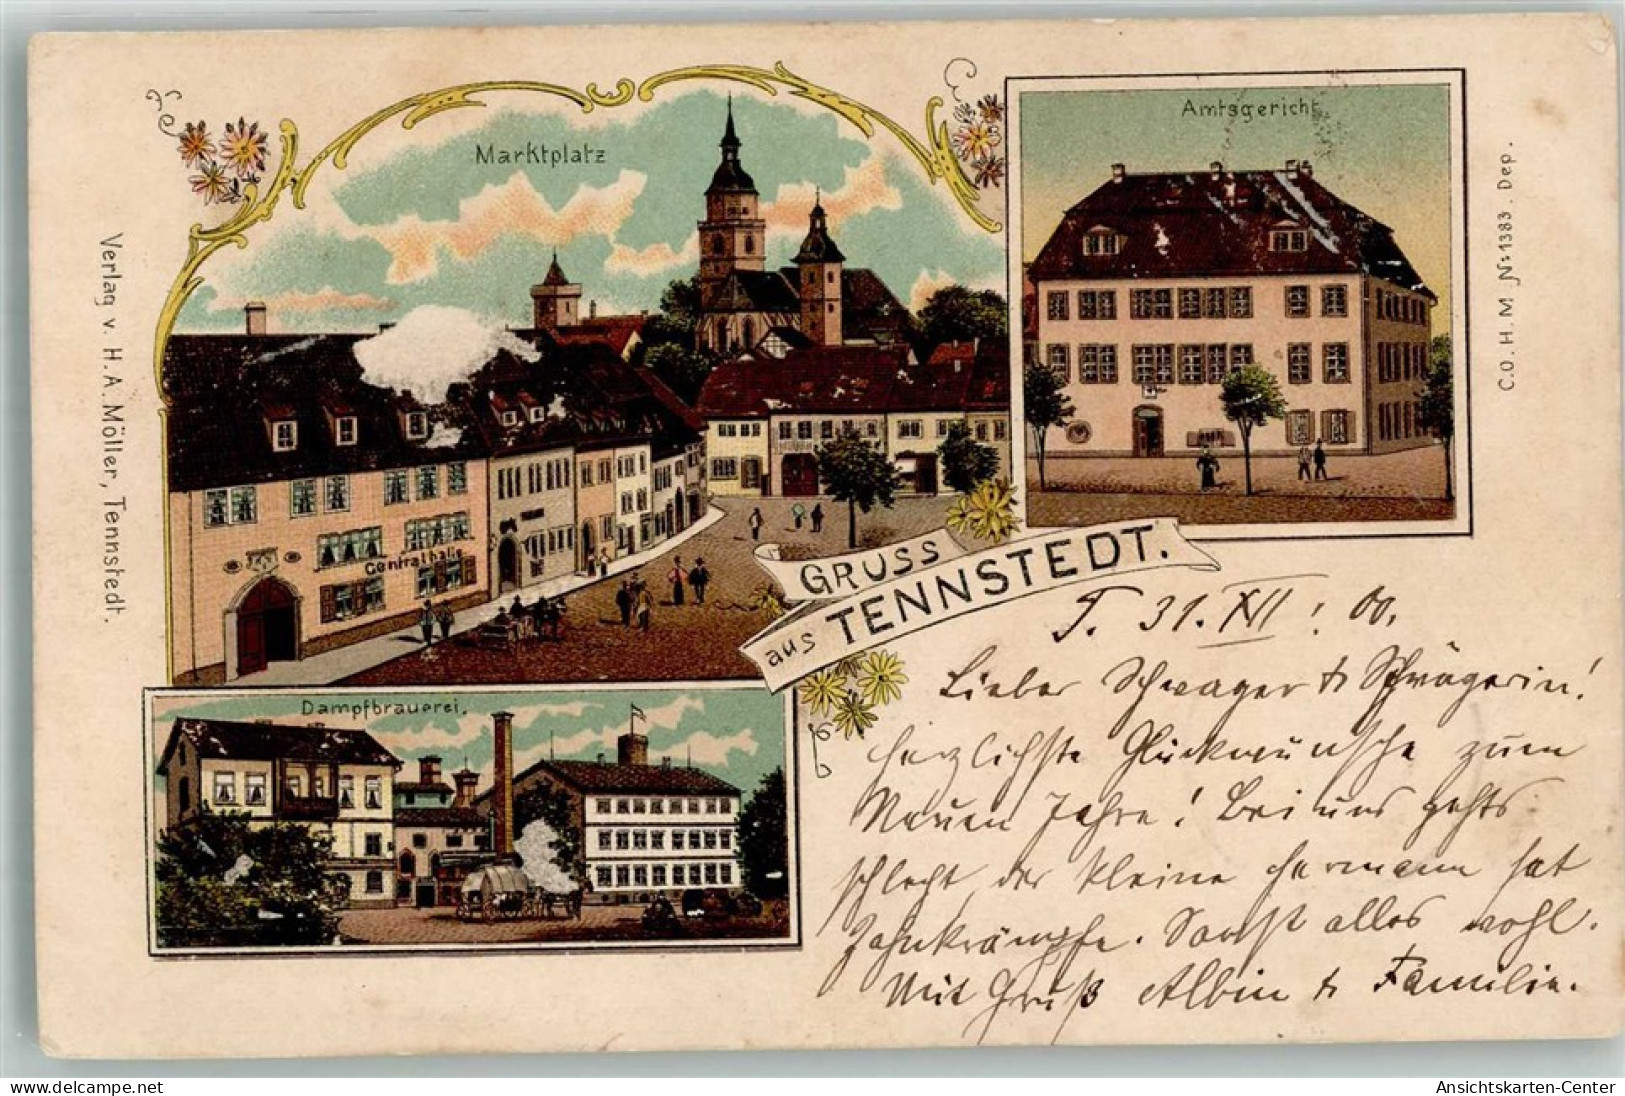 Marktplatz
Amtsgericht
Centralhalle
GRUSS
aus TENNSTEDT.
Dampfbrauerei.
Verlag v. H. A. Möller, Tennstedt.
C.O.H.M № 1383. Dep.
T. 31. XII. 00.
Lieber Schwager & Schwägerin!
herzlichste Glückwünsche zum
Neuen Jahre! Bei uns gehts
schlecht, der kleine Hermann hat
Zahnkrämpfe. Sonst alles wohl.
Mit Gruß Albin & Familie.
Ansichtskarten-Center